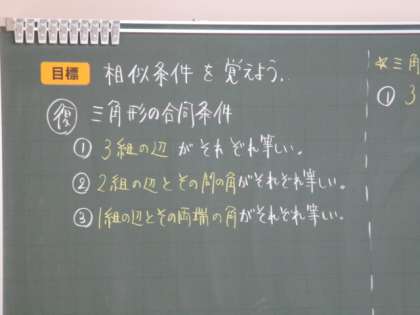 目標 相似条件を覚えよう.
復 三角形の合同条件
① 3組の辺がそれぞれ等しい。
② 2組の辺とその間の角がそれぞれ等しい。
③ 1組の辺とその両端の角がそれぞれ等しい。
☆三角
① 3